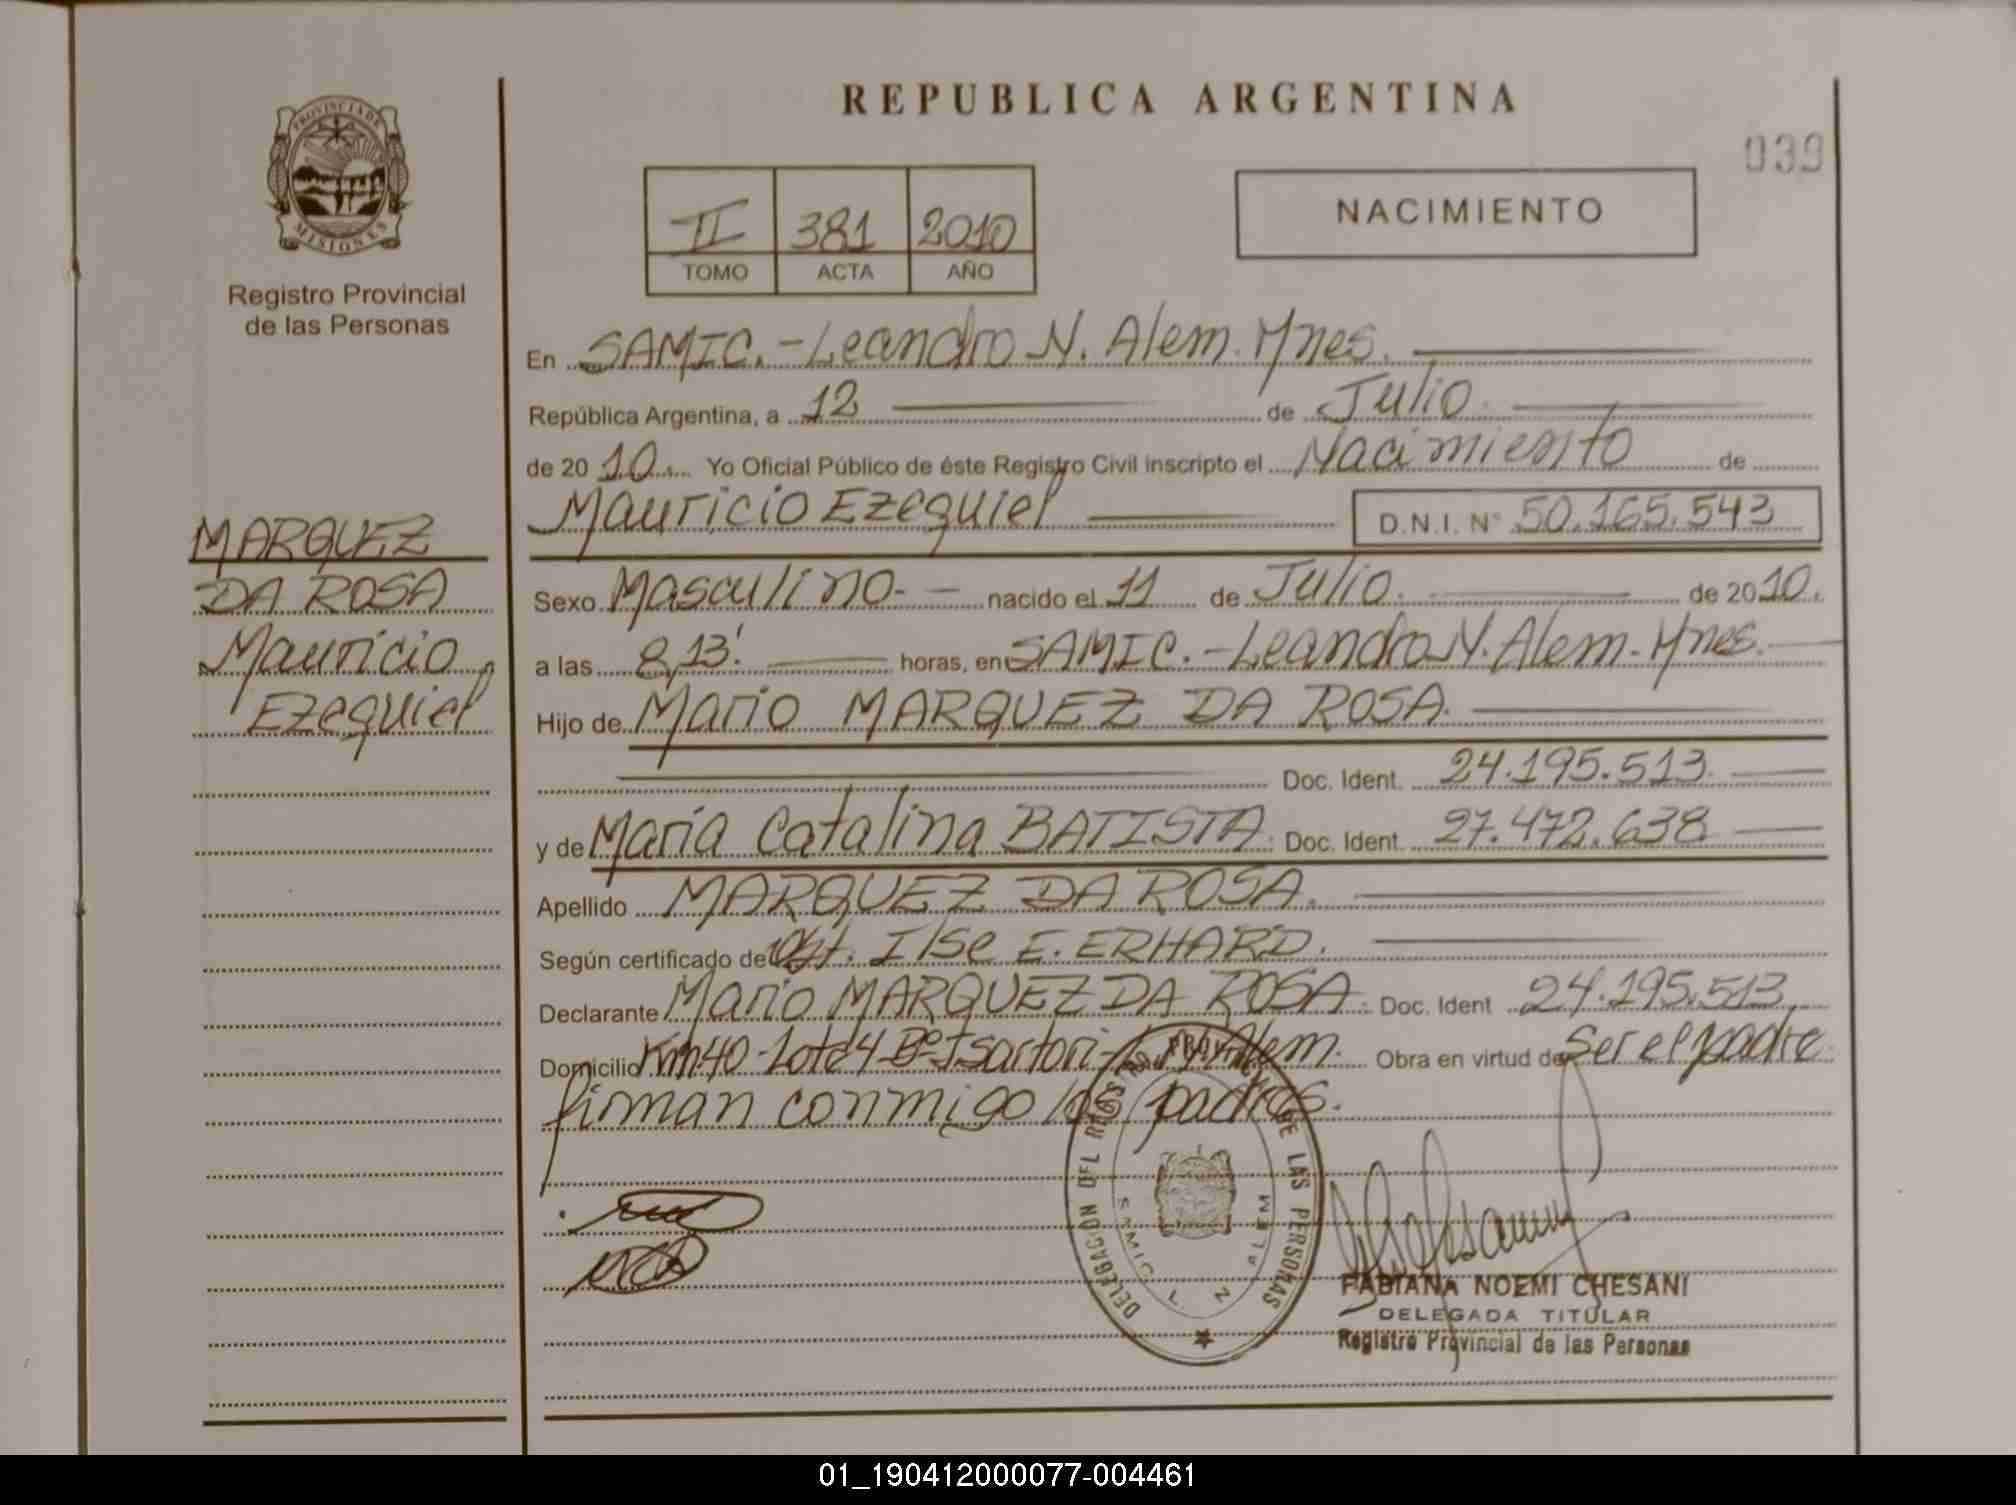 REPUBLICA ARGENTINA
039
PROVINCIA DE
MISIONES
Registro Provincial
de las Personas
II 381 2010
TOMO ACTA AÑO
NACIMIENTO
En SAMIC.-Leandro N. Alem. Mnes.
República Argentina, a 12 de Julio
de 2010. Yo Oficial Público de éste Registro Civil inscripto el Nacimiento de
Mauricio Ezequiel D.N.I. N° 50.165.543
MARQUEZ
DA ROSA
Mauricio
Ezequiel
Sexo Masculino.- nacido el 11 de Julio. de 2010.
a las 8,13'. horas, en SAMIC.-Leandro N. Alem.-Mnes.
Hijo de Mario MARQUEZ DA ROSA.
Doc. Ident. 24.195.513.
y de María Catalina BATISTA. Doc. Ident. 27.472.638
Apellido MARQUEZ DA ROSA.
Según certificado de Obst. Ilse E. ERHARD.
Declarante Mario MARQUEZ DA ROSA. Doc. Ident 24.195.513,
Domicilio Km40-Lote4-B° Alem. Obra en virtud de Ser el padre
firman conmigo los padres.
DELEGACION DEL REGISTRO PROVINCIAL DE LAS PERSONAS
SAMIC L N ALEM
FABIANA NOEMI CHESANI
DELEGADA TITULAR
Registro Provincial de las Personas
01_190412000077-004461